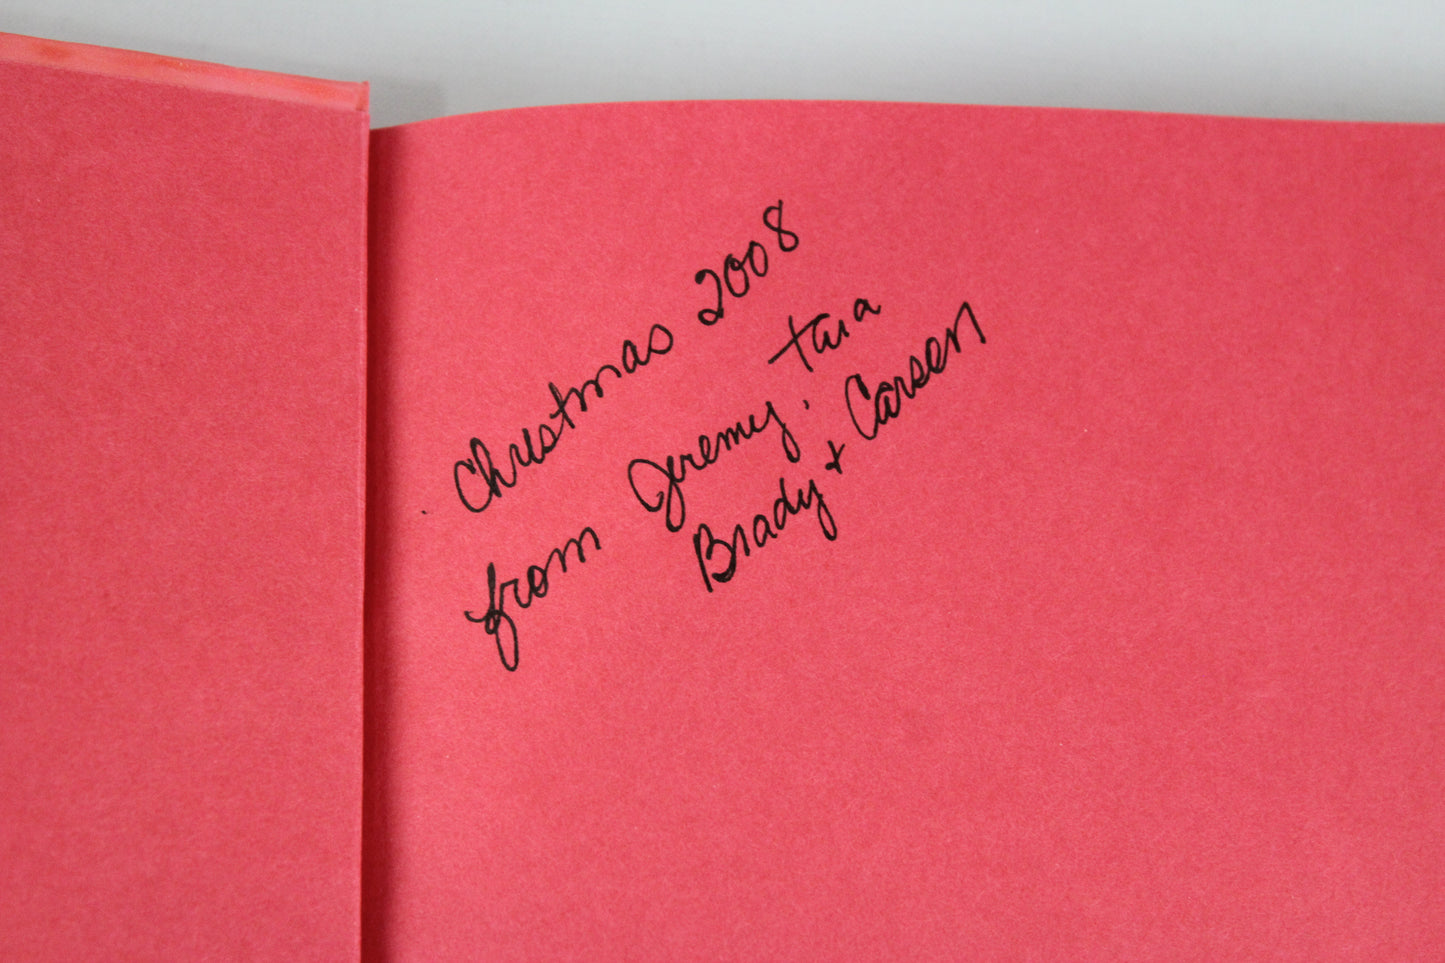 Christmas 2008
from Jeremy, Tara
Brady + Carsen